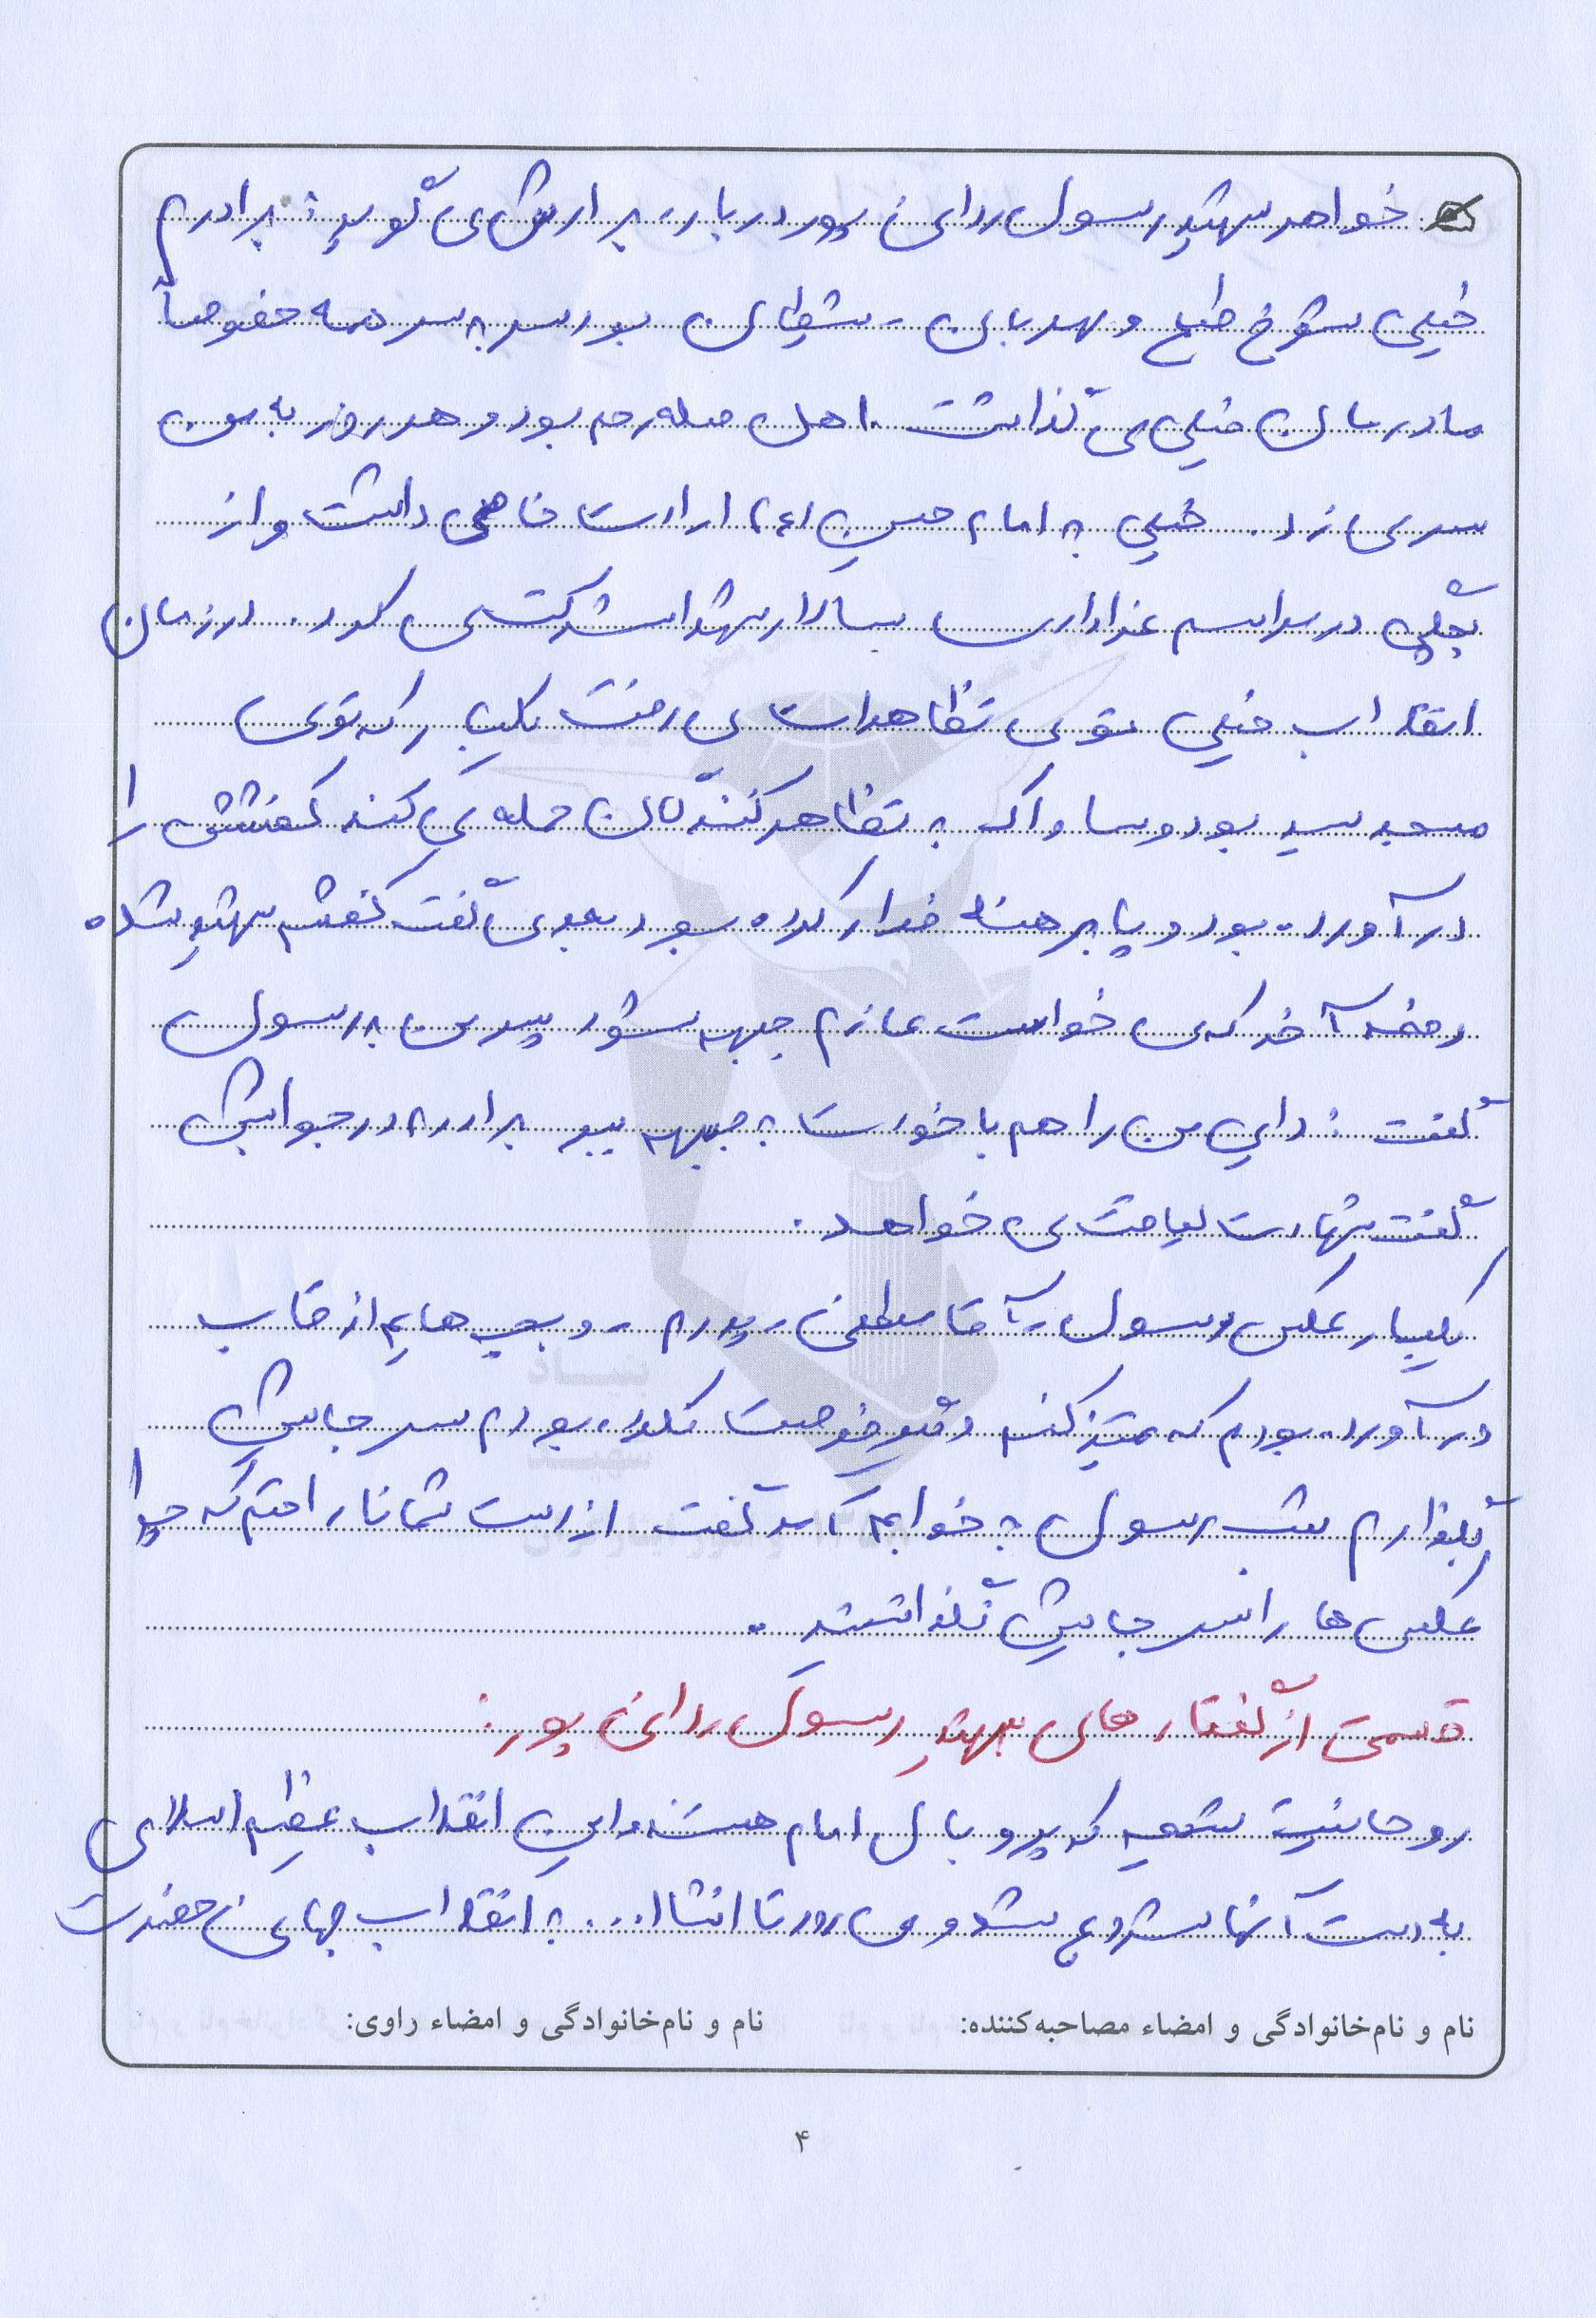 خواهر شهید رسول ردائی پور درباره برادرش می گوید: برادرم
خیلی شوخ طبع و مهربان، شیطان بود سر به سر همه خصوصاً
مادرمان خیلی می گذاشت. اهل صله رحم بود و هر روز به من
سر می زد. خیلی به امام حسین (ع) ارادت خاصی داشت و از
بچگی در مراسم عزاداری سالار شهدا شرکت می کرد. در زمان
انقلاب خیلی توی تظاهرات می رفت یکبار که توی
مسجد سید بود و ساواک به تظاهرکنندگان حمله می کند کفشش را
در آورده بود و پا برهنه فرار کرده بود بعد می گفت کفشم شهید شده
دفعه آخر که می خواست عازم جبهه شود پسر من به رسول
گفت: دایی من را هم با خودت به جبهه ببر برادرم در جوابش
گفت شهادت لیاقت می خواهد.
یکبار عکس رسول، آقا مصطفی، پدرم، و بچه هایم از قاب
در آورده بودم که تمیز کنم وقتی فرصت نکرده بودم سر جایش
بگذارم شب رسول به خوابم آمد گفت از دست شما ناراحتم که چرا
عکس ها را سر جایش نگذاشتید.
قسمتی از گفتارهای شهید رسول ردائی پور:
روحانیت شیعه که پر و بال امام هستند و این انقلاب عظیم اسلامی
به دست آنها شروع شد و می رود تا انشاا... به انقلاب جهانی حضرت
نام و نام‌خانوادگی و امضاء مصاحبه‌کننده: نام و نام‌خانوادگی و امضاء راوی:
۴